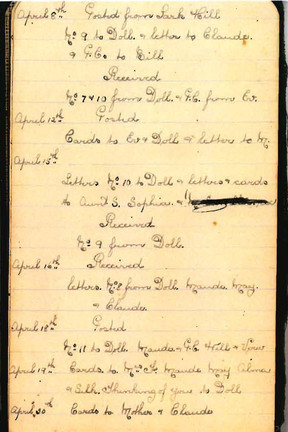 April 8th Posted from Lark Hill
No 9 to Doll. & letter to Claude.
& F.C. to Bill
Received
No 7 & 10 from Doll. & F.C. from Ev.
April 12th Posted
Cards to Ev & Doll & letter to M.
April 15th
Letters No 10 to Doll & letters & cards
to Aunt S. Sophia. &
Received
No 9 from Doll.
Received
letters. No 8 from Doll Maude. May.
& Claude
April 18th Posted
No 11 to Doll. Maude. & F.C. Will &
April 19th Cards. to Maude May Alma
& Silk. Thinking of you to Doll
April 20th Cards to Mother & Claude